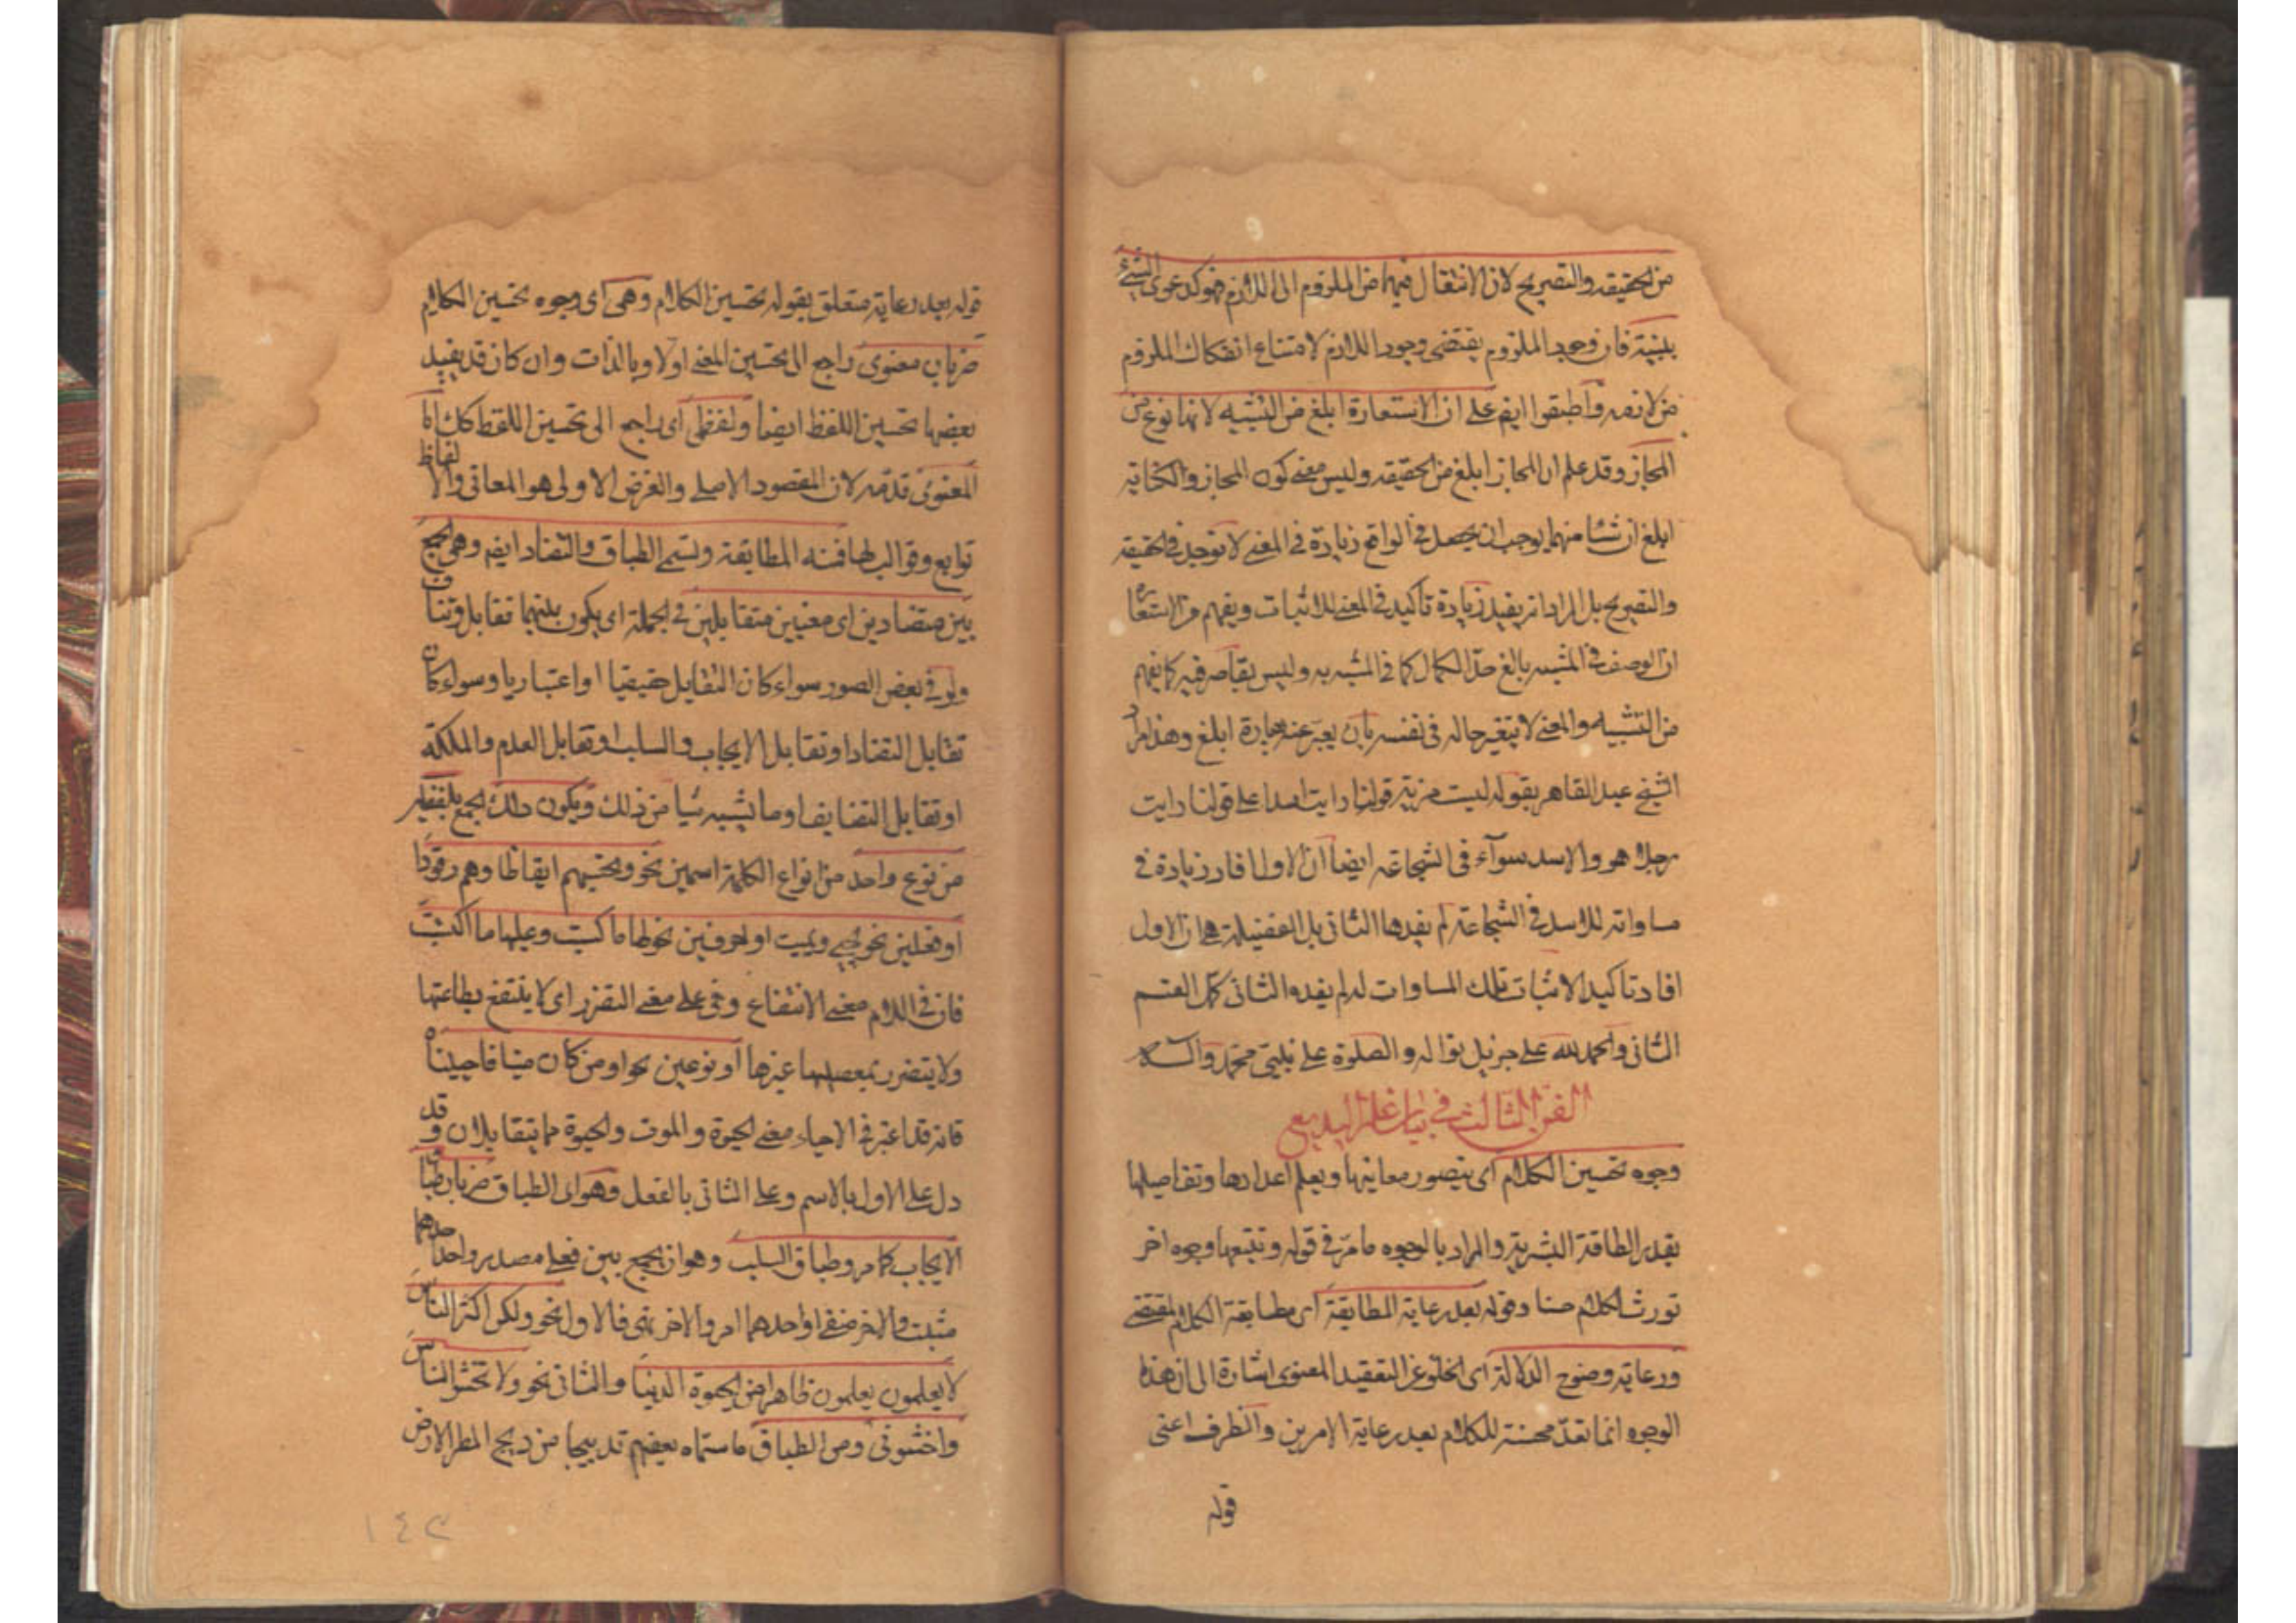 من الحقيقة والتصريح لان الانتقال فيهما من الملزوم الى اللازم فهو كدعوى الشئ
ببينة فان وجود الملزوم يقتضى وجود اللازم لامتناع انفكاك الملزوم
من لازمه واطبقوا ايضم على ان الاستعارة ابلغ من التشبيه لانها نوع من
المجاز وقد علم ان المجاز ابلغ من الحقيقة وليس معنى كون المجاز والكناية
ابلغ ان شئا منهما يوجب ان يحصل فى الواقع زيادة فى المعنى لا توجد فى الحقيقة
والتصريح بل المراد انه يفيد زيادة تاكيد فى المعنى للاثبات ويفهم من الاستعارة
ان الوصف فى المشبه بالغ حد الكمال كما فى المشبه به وليس بقاصر فيه كما يفهم
من التشبيه والمعنى لا يتغير حاله فى نفسه بان يعبر عنه بعبارة ابلغ وهذا مراد
الشيخ عبد القاهر بقوله ليست مزية قولنا رايت اسدا على قولنا رايت
رجلا هو والاسد سوآء فى الشجاعة ايضا ان الاول افاد زيادة فى
مساواته للاسد فى الشجاعة لم يفدها الثانى بل الفضيلة هى ان الاول
افاد تاكيد الاثبات تلك المساوات له لم يفده الثانى كمل القسم
الثانى والحمد لله على جزيل نواله والصلوة على نبيه محمد وآله
الفن الثالث فى بيان علم البديع
وجوه تحسين الكلام اى يتصور معانيها ويعلم اعدادها وتفاصيلها
بقدر الطاقة البشرية والمراد بالوجوه ما مر فى قوله وتتبعها وجوه اخر
تورث الكلام حسنا وقوله بعد رعاية المطابقة اى مطابقة الكلام لمقتضى
ورعاية وضوح الدلالة اى الخلو عن التعقيد المعنوى اشارة الى ان هذه
الوجوه انما تعد محسنة للكلام بعد رعاية الامرين والظرف اعنى
قوله
قوله بعد رعاية متعلق بقوله تحسين الكلام وهى اى وجوه تحسين الكلام
ضربان معنوى راجع الى تحسين المعنى اولا وبالذات وان كان قد يفيد
بعضها تحسين اللفظ ايضا ولفظى اى راجع الى تحسين اللفظ كك اما
المعنوى قدمه لان المقصود الاصلى والغرض الاولى هو المعانى والالفاظ
توابع وقوالب لها فمنه المطابقة وتسمى الطباق والتضاد ايضم وهى الجمع
بين متضادين اى معنيين متقابلين فى الجملة اى يكون بينهما تقابل وتناف
ولو فى بعض الصور سواء كان التقابل حقيقيا او اعتباريا وسواء كان
تقابل التضاد او تقابل الايجاب والسلب او تقابل العدم والملكة
او تقابل التضايف او ما يشبه شيا من ذلك ويكون ذلك الجمع بلفظين
من نوع واحد من انواع الكلمة اسمين نحو وتحسبهم ايقاظا وهم رقود
او فعلين نحو يحيى ويميت او حرفين نحو لها ما كسبت وعليها ما اكتسبت
فان فى اللام معنى الانتفاع وفى على معنى التضرر اى لا ينتفع بطاعتها
ولا يتضرر بمعصيتها غيرها او نوعين نحو او من كان ميتا فاحييناه
فانه قد اعتبر فى الاحياء معنى الحيوة والموت والحيوة مما يتقابلان وقد
دل على الاول بالاسم وعلى الثانى بالفعل وهو اى الطباق ضربان طباق
الايجاب كما مر وطباق السلب وهو ان يجمع بين فعلى مصدر واحد احدهما
مثبت والاخر منفى او احدهما امر والاخر نهى فالاول نحو ولكن اكثر الناس
لا يعلمون يعلمون ظاهرا من الحيوة الدنيا والثانى نحو ولا تخشوا الناس
واخشونى ومن الطباق ما سماه بعضهم تدبيجا من دبج المطر الارض
١٤٢